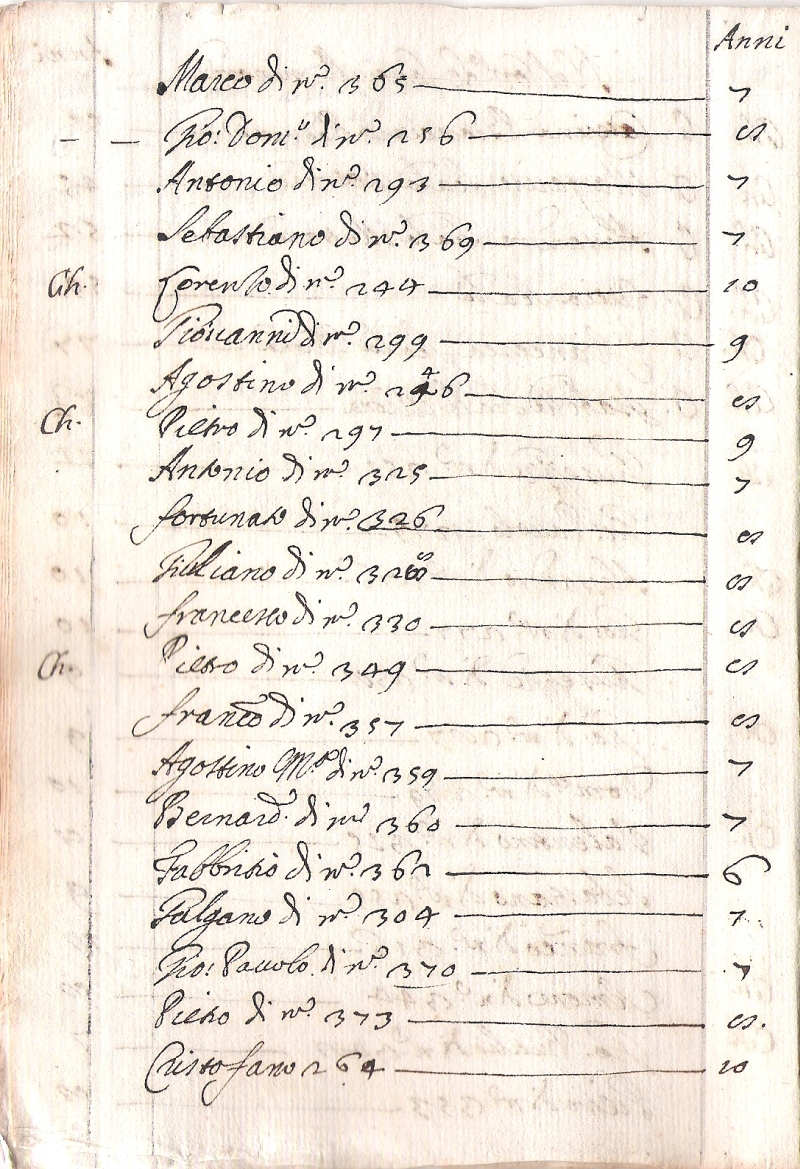 Anni
Marco di nº. 365 7
— — Gio: Dom.co di nº. 256 8
Antonio di nº. 293 7
Sebastiano di nº. 369 7
Ch. Lorenzo di nº. 244 10
Giovanni di nº. 299 9
Agostino di nº. 246 8
Ch. Pietro di nº. 297 9
Antonio di nº. 325 7
fortunato di nº. 326 8
Giuliano di nº. 328 8
francesco di nº. 330 8
Ch. Pietro di nº. 349 8
franc.o di nº. 357 8
Agostino M.a di nº. 359 7
Bernard.o di nº 360 7
Fabbritio di nº. 362 6
Galgano di nº 304 7
Gio: Pauolo di nº. 370 7
Pietro di nº. 373 8.
Cristofano 264 10